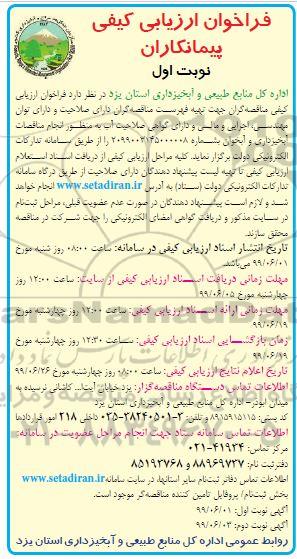 فراخوان ارزیابی کیفی
پیمانکاران
نوبت اول
اداره کل منابع طبیعی و آبخیزداری استان یزد در نظر دارد فراخوان ارزیابی
کیفی مناقصه‌گران جهت تهیه فهرست مناقصه‌گران دارای صلاحیت و دارای توان
مهندسی، اجرایی و مالی و دارای گواهی صلاحیت آب به منظور انجام مناقصات
آبخیزداری و آبخوان بشماره ۲۰۹۹۰۰۳۲۱۴۵۰۰۰۰۰۸ را از طریق سامانه تدارکات
الکترونیکی دولت برگزار نماید. کلیه مراحل ارزیابی کیفی از دریافت اسناد استعلام
ارزیابی کیفی تا تهیه لیست پیشنهاد دهندگان دارای صلاحیت از طریق درگاه سامانه
تدارکات الکترونیکی دولت (ستاد) به آدرس www.setadiran.ir انجام خواهد
شد و لازم است پیشنهاد دهندگان در صورت عدم عضویت قبلی، مراحل ثبت‌نام
در سایت مذکور و دریافت گواهی امضای الکترونیکی را جهت شرکت در مناقصه
محقق سازند.
تاریخ انتشار اسناد ارزیابی کیفی در سامانه: ساعت ۰۸:۰۰ روز شنبه مورخ
۹۹/۰۶/۰۱ می‌باشد.
مهلت زمانی دریافت اسناد ارزیابی کیفی از سایت: ساعت ۱۲:۰۰ روز
چهارشنبه مورخ ۹۹/۰۶/۰۵
مهلت زمانی ارائه اسناد ارزیابی کیفی: ساعت ۱۲:۰۰ روز چهارشنبه مورخ
۹۹/۰۶/۱۹
زمان بازگشایی اسناد ارزیابی کیفی: ساعت ۱۲:۳۰ روز چهارشنبه مورخ
۹۹/۰۶/۱۹
تاریخ اعلام نتایج ارزیابی کیفی: ساعت ۰۸:۰۰ روز چهارشنبه مورخ ۹۹/۰۶/۲۶
اطلاعات تماس دستگاه مناقصه‌گزار: یزد خیابان آیت‌ا... کاشانی نرسیده به
میدان ابوذر - اداره کل منابع طبیعی و آبخیزداری استان یزد
کد پستی: ۸۹۱۵۹۱۵۱۱۵ و تلفن: ۳-۳۸۲۴۰۵۰۱-۰۳۵ داخلی ۲۱۸ امور قراردادها
اطلاعات تماس سامانه ستاد جهت انجام مراحل عضویت در سامانه:
مرکز تماس: ۴۱۹۳۴-۰۲۱
دفتر ثبت نام: ۸۸۹۶۹۷۳۷ و ۸۵۱۹۳۷۶۸
اطلاعات تماس دفاتر ثبت‌نام سایر استانها، در سایت سامانه www.setadiran.ir
بخش ثبت‌نام/ پروفایل تامین کننده مناقصه‌گر موجود است.
آگهی نوبت اول: ۹۹/۰۶/۰۱
آگهی نوبت دوم: ۹۹/۰۶/۰۳
روابط عمومی اداره کل منابع طبیعی و آبخیزداری استان یزد